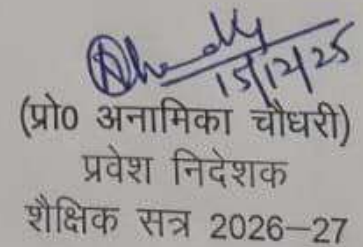 15/12/25
(प्रो0 अनामिका चौधरी)
प्रवेश निदेशक
शैक्षिक सत्र 2026–27